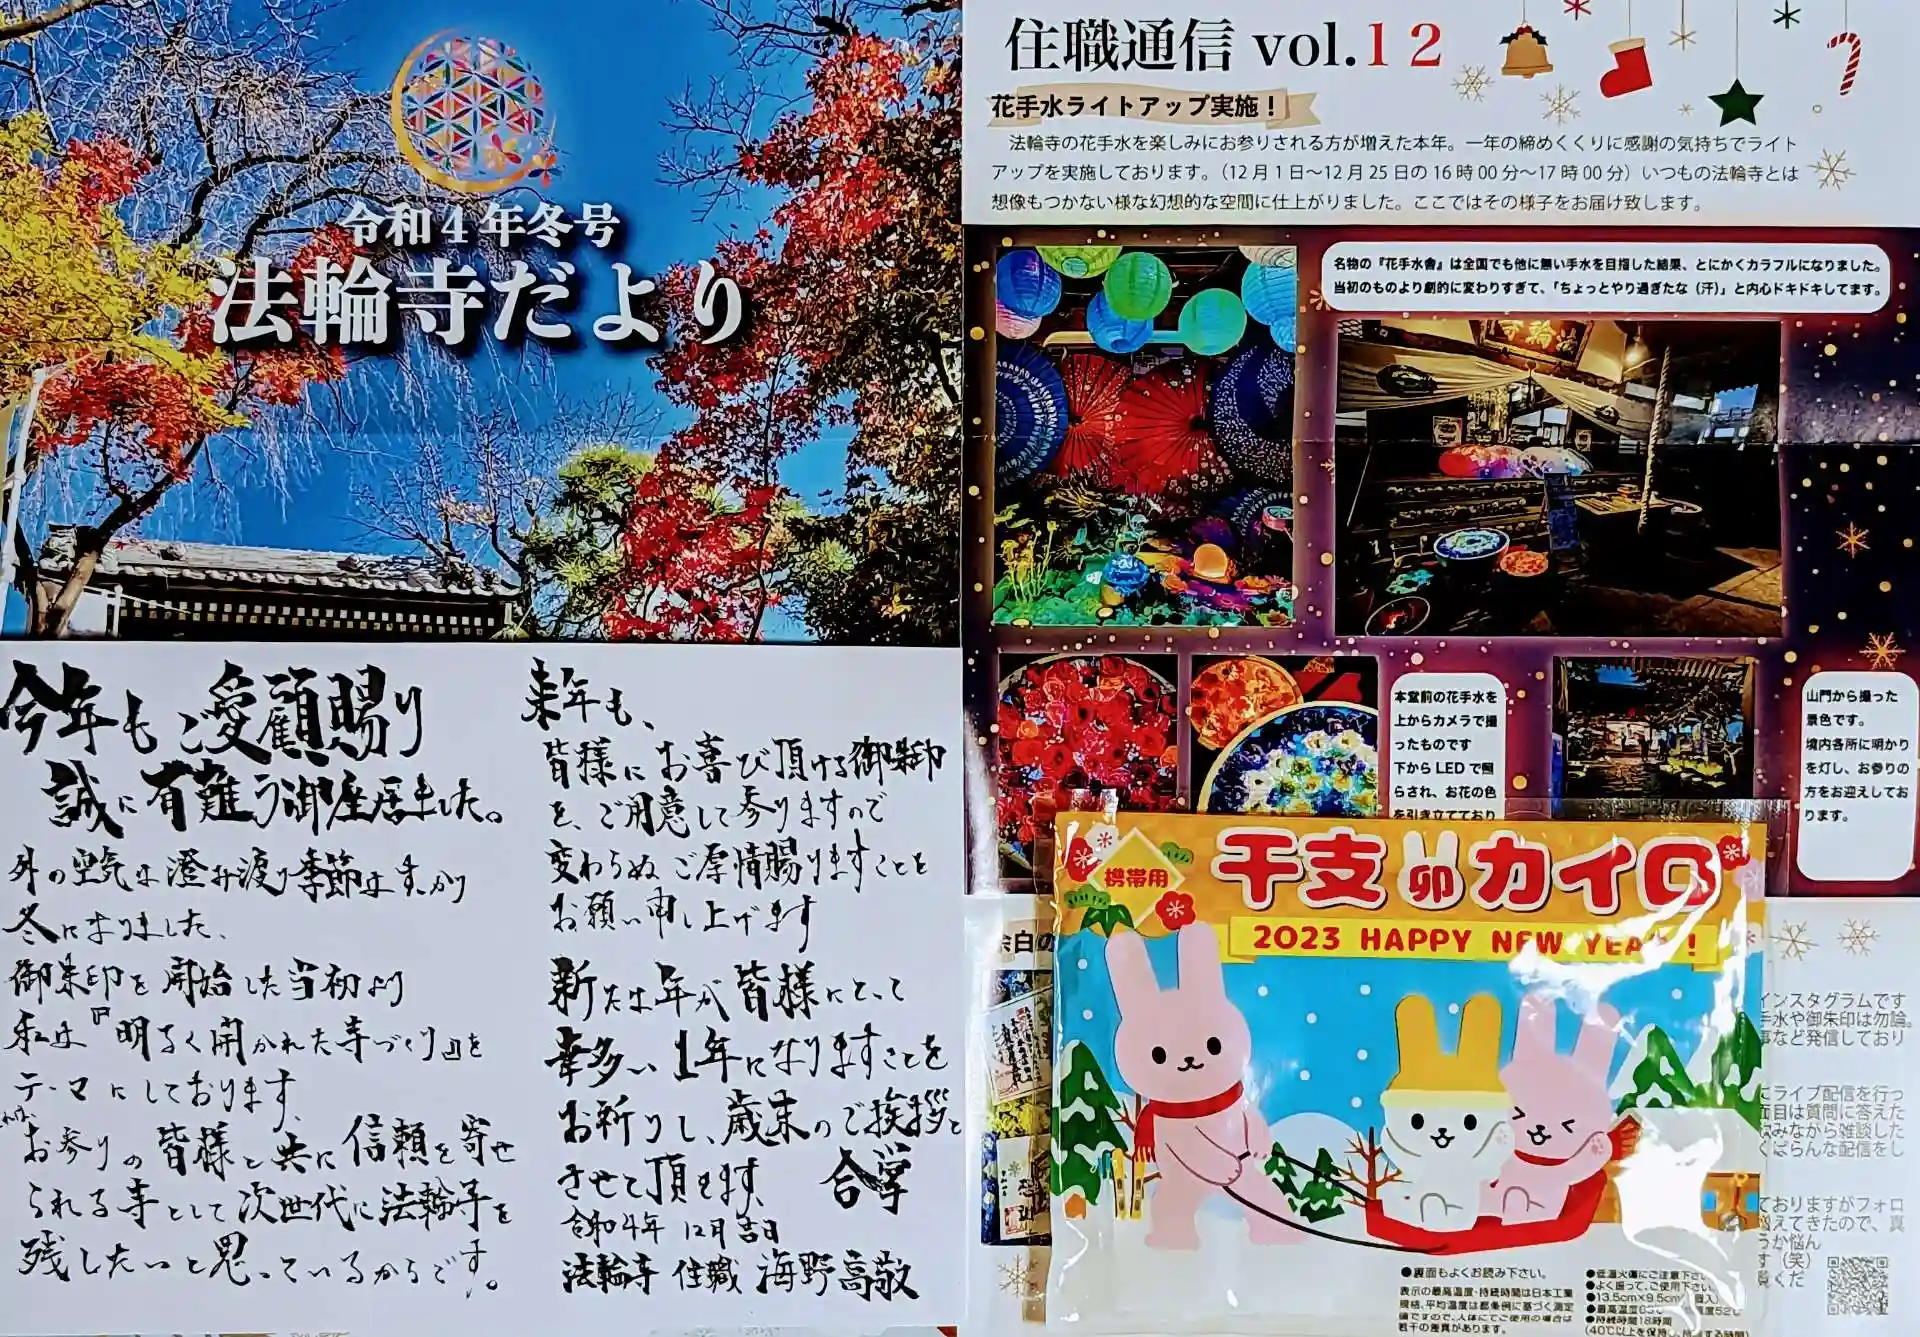 令和4年冬号
法輪寺だより
今年もご愛顧賜り
誠に有難う御座居ました。
外の空気は澄み渡り季節はすっかり
冬になりました、
御朱印を開始した当初より
私は『明るく開かれた寺づくり』を
テーマにしております、
お参りの皆様と共に信頼を寄せ
られる寺として次世代に法輪寺を
残したいと思っているからです。
来年も、
皆様にお喜び頂ける御朱印
を、ご用意して参りますので
変わらぬご厚情賜りますことを
お願い申し上げます
新たな年が皆様にとって
幸多い1年になりますことを
お祈りし、歳末のご挨拶と
させて頂きます、
合掌
令和4年 12月吉日
法輪寺 住職 海野高敬
住職通信 vol.12
花手水ライトアップ実施！
法輪寺の花手水を楽しみにお参りされる方が増えた本年。一年の締めくくりに感謝の気持ちでライト
アップを実施しております。（12月1日～12月25日の16時00分～17時00分）いつもの法輪寺とは
想像もつかない様な幻想的な空間に仕上がりました。ここではその様子をお届け致します。
名物の『花手水舎』は全国でも他に無い手水を目指した結果、とにかくカラフルになりました。
当初のものより劇的に変わりすぎて、「ちょっとやり過ぎたな（汗）」と内心ドキドキしてます。
本堂前の花手水を
上からカメラで撮
ったものです
下からLEDで照
らされ、お花の色
を引き立てており
山門から撮った
景色です。
境内各所に明かり
を灯し、お参りの
方をお迎えしてお
ります。
携帯用
干支卯カイロ
2023 HAPPY NEW YEAR!
余白の
インスタグラムです
手水や御朱印は勿論。
事など発信しており
にライブ配信を行っ
面目は質問に答えた
飲みながら雑談した
くばらんな配信をし
ておりますがフォロ
増えてきたので、真
うか悩ん
す（笑）
覧くだ
●裏面もよくお読み下さい。
表示の最高温度・持続時間は日本工業
規格、平均温度は都条例に基づく測定
値ですので、人体にてご使用の場合は
若干の差異があります。
●低温火傷にご注意下さい。
●よく振って、ご使用下さい。
●13.5cm×9.5cm
●最高温度
●持続時間18時間
(40℃以上を保持し、持続する時間)